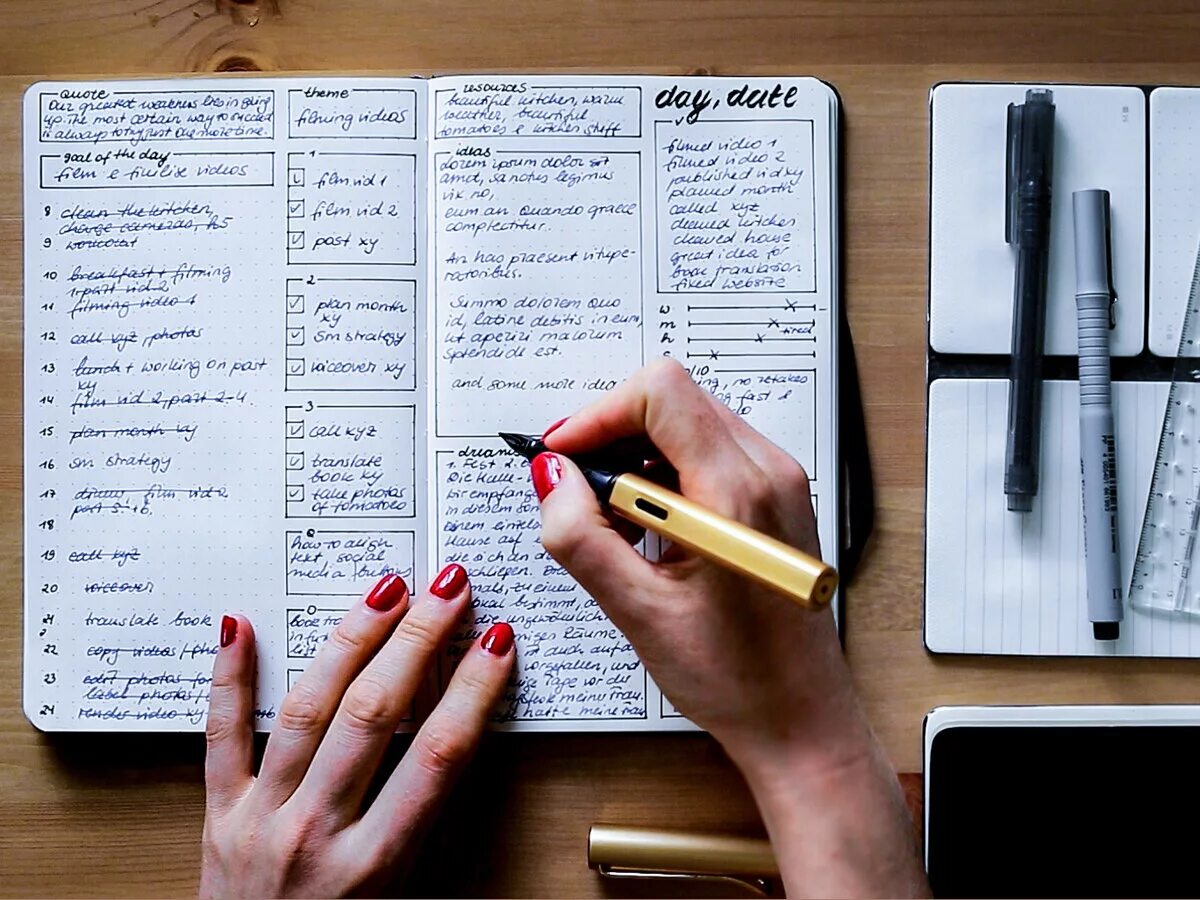 quote
Our greatest weakness lies in giving
up. The most certain way to succeed
is always to try just one more time.
goal of the day
film e finilise videos
8 clean the kitchen,
charge cameras, h5
9 workout
10 breakfast + filming
1 part vid 2
11 filming video 1
12 call xyz, photos
13 lunch + working on post
xy
14 film vid 2, part 2-4.
15 plan month xy
16 sm strategy
17 film vid 2
part 5. + 6.
18
19 call xyz
20 voiceover
21 translate book
22 copy videos /
23 edit photos for
label photos /
24 render video xy
theme
filming videos
1
film vid 1
film vid 2
post xy
2
plan month
xy
sm strategy
voiceover xy
3
call xyz
translate
book xy
take photos
of tomatoes
how to align
text social
media buttons
book
list
resources
beautiful kitchen, warm
weather, beautiful
tomatoes e kitchen stuff
ideas
dorem ipsum dolor sit
amed, sanctus legimus
vix no,
eum an quando graece
complectitur.
An has praesent vitupe-
ratoribus.
Summo dolorem quo
id, latine debitis in eum,
ut aperiri malorum
splendide est.
and some more idea
1. Fest 2.
Die Halle
bir empfang
in diesem
einem
Hause auf
die sich an
schliepen.
mals, zu einem
bestimmt,
die ungewöhnlich
Räume.
ist auch auf
vorgefallen, und
Tage vor der
meine Frau.
hatte meine Frau
day, date
filmed video 1
filmed video 2
published vid xy
planned month
called xyz
cleaned kitchen
cleaned house
great idea for
book translation
fixed website
w
m
tired
h
/10
no retakes
fast e